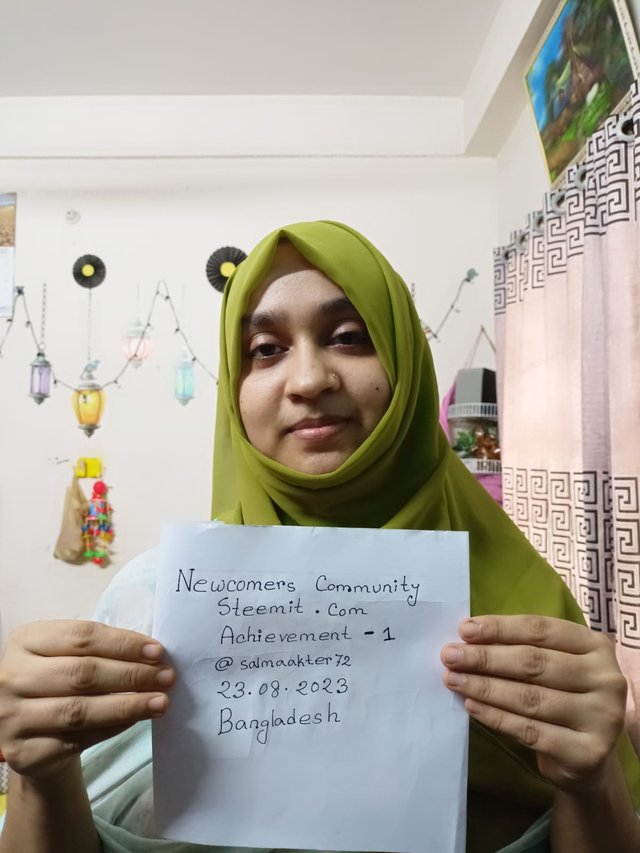 Newcomers Community
Steemit . Com
Achievement - 1
@ salmaakter72
23.08.2023
Bangladesh